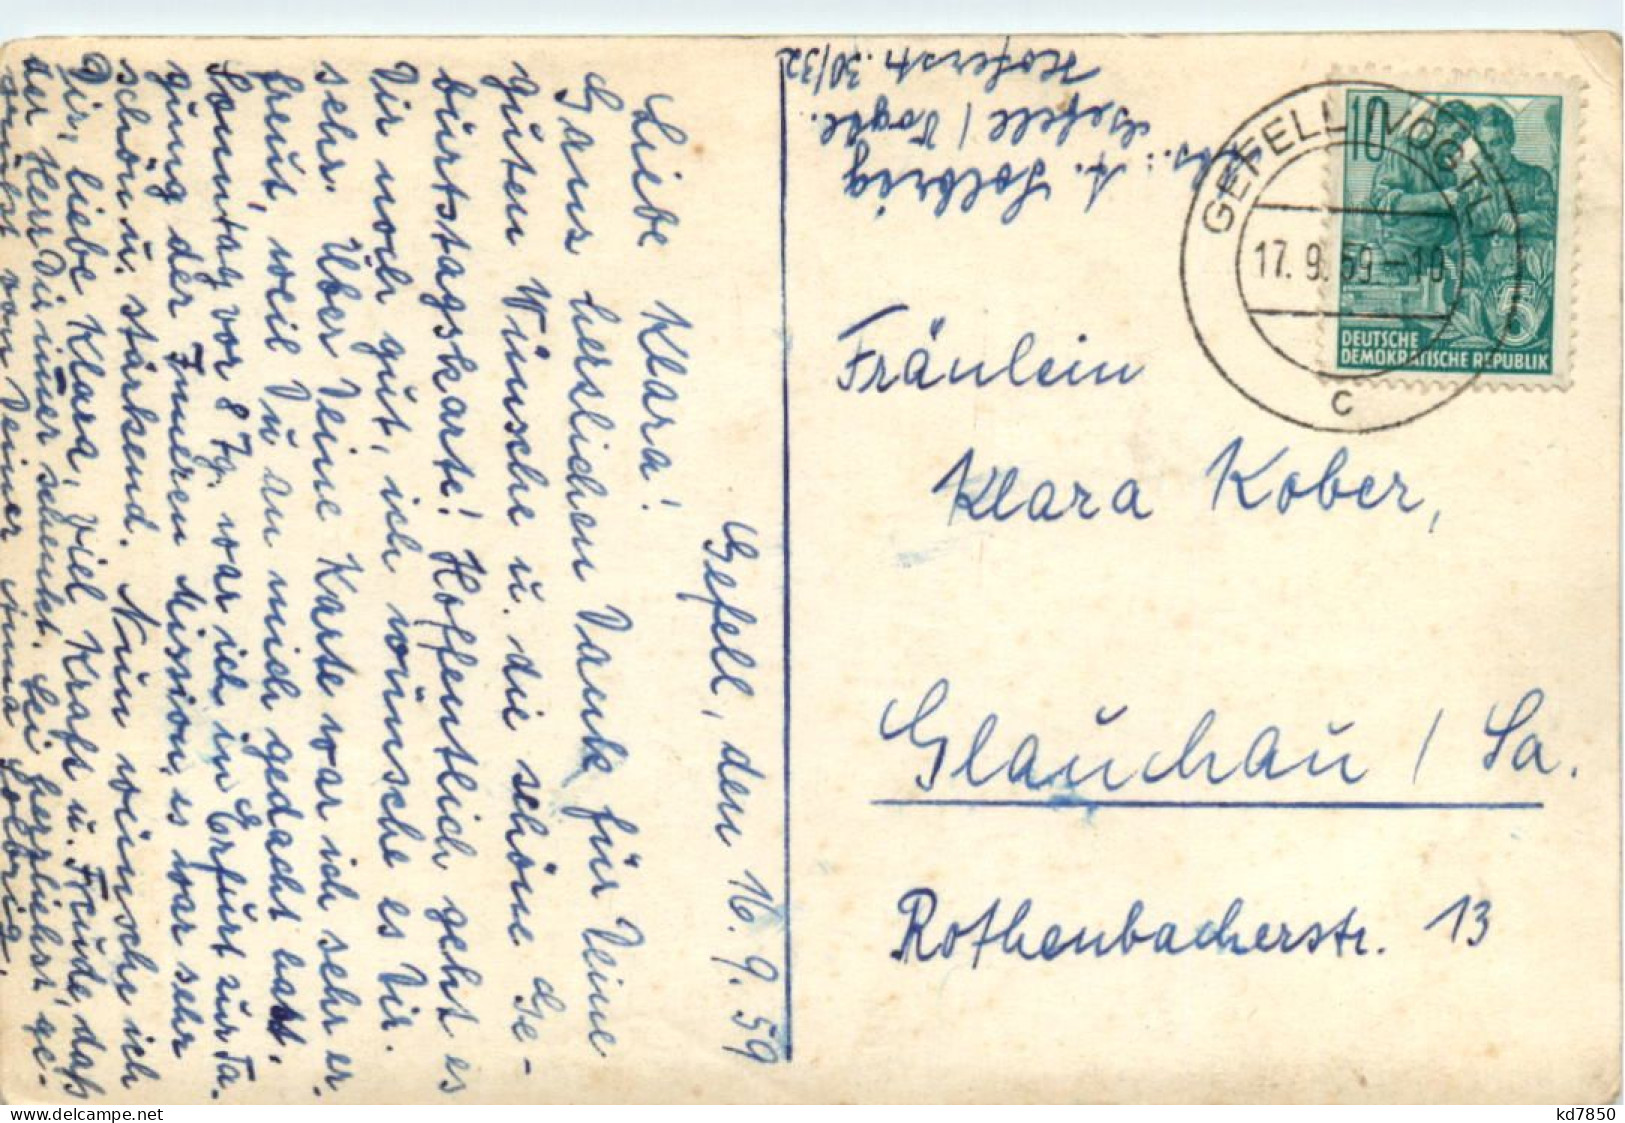 Gefell, den 16. 9. 59
Liebe Klara!
Ganz herzlichen Dank für Deine
guten Wünsche u. die schöne Ge-
burtstagskarte! Hoffentlich geht es
Dir noch gut, ich wünsche es Dir
sehr. Über Deine Karte war ich sehr er-
freut, weil Du an mich gedacht hast.
Sonntag vor 8 Tg. war ich in Erfurt zur Ta-
gung der Inneren Mission, es war sehr
schön u. stärkend. Nun wünsche ich
Dir, liebe Klara, viel Kraft u. Freude, daß
der Herr Dir immer schenkt. Sei herzlichst ge-
grüßt von Deiner Anna Solbrig.
Abs.: A. Solbrig
Gefell / Vogtl.
Hoferstr. 30/32
GEFELL (VOGTL)
17. 9. 59 -10
c
10
5
DEUTSCHE
DEMOKRATISCHE REPUBLIK
Fräulein
Klara Kober,
Glauchau / Sa.
Rothenbacherstr. 13
delcampe.net
kd7850